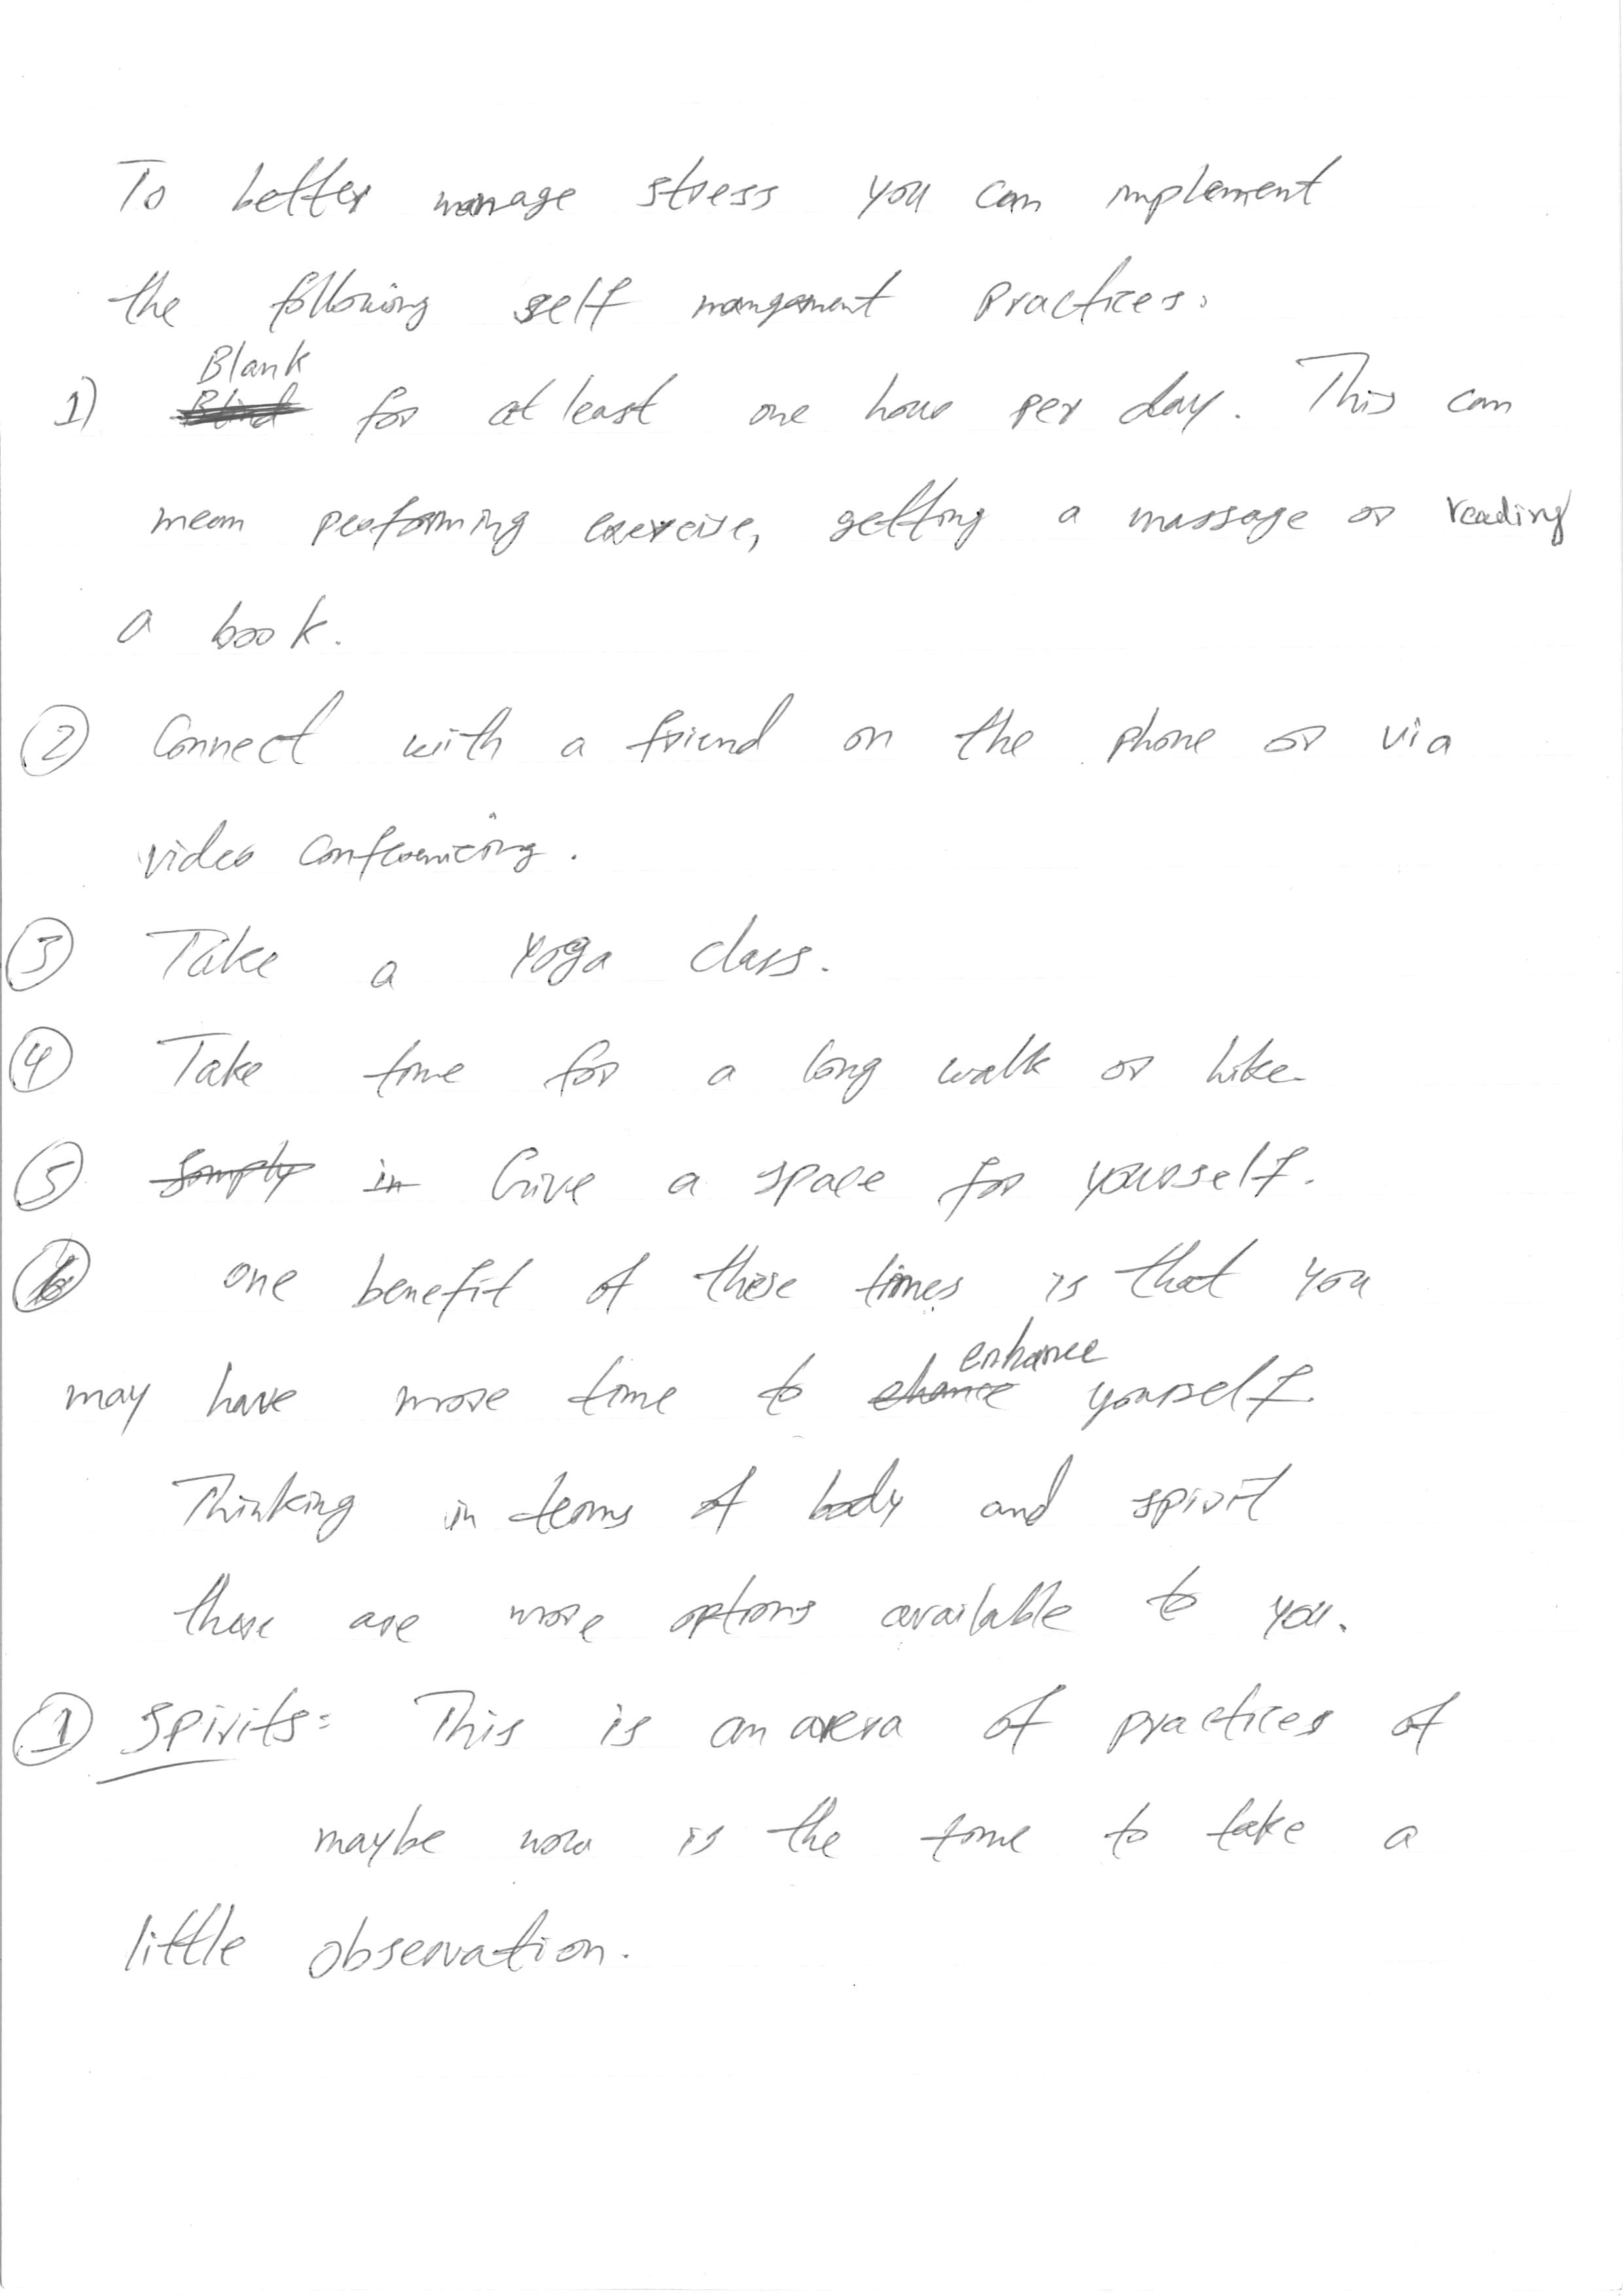 To better manage stress you can implement
the following self mangement practices:
Blank
1) for at least one hour per day. This can
mean performing exercise, getting a massage or reading
a book.
2 Connect with a friend on the phone or via
video conferencing.
3 Take a Yoga class.
4 Take time for a long walk or hike
5 Simply in Give a space for yourself.
one benefit of these times is that you
enhance
may have more time to ehance yourself.
Thinking in terms of body and spirit
there are more options available to you.
1 Spirits: This is an area of practices of
maybe now is the time to take a
little observation.